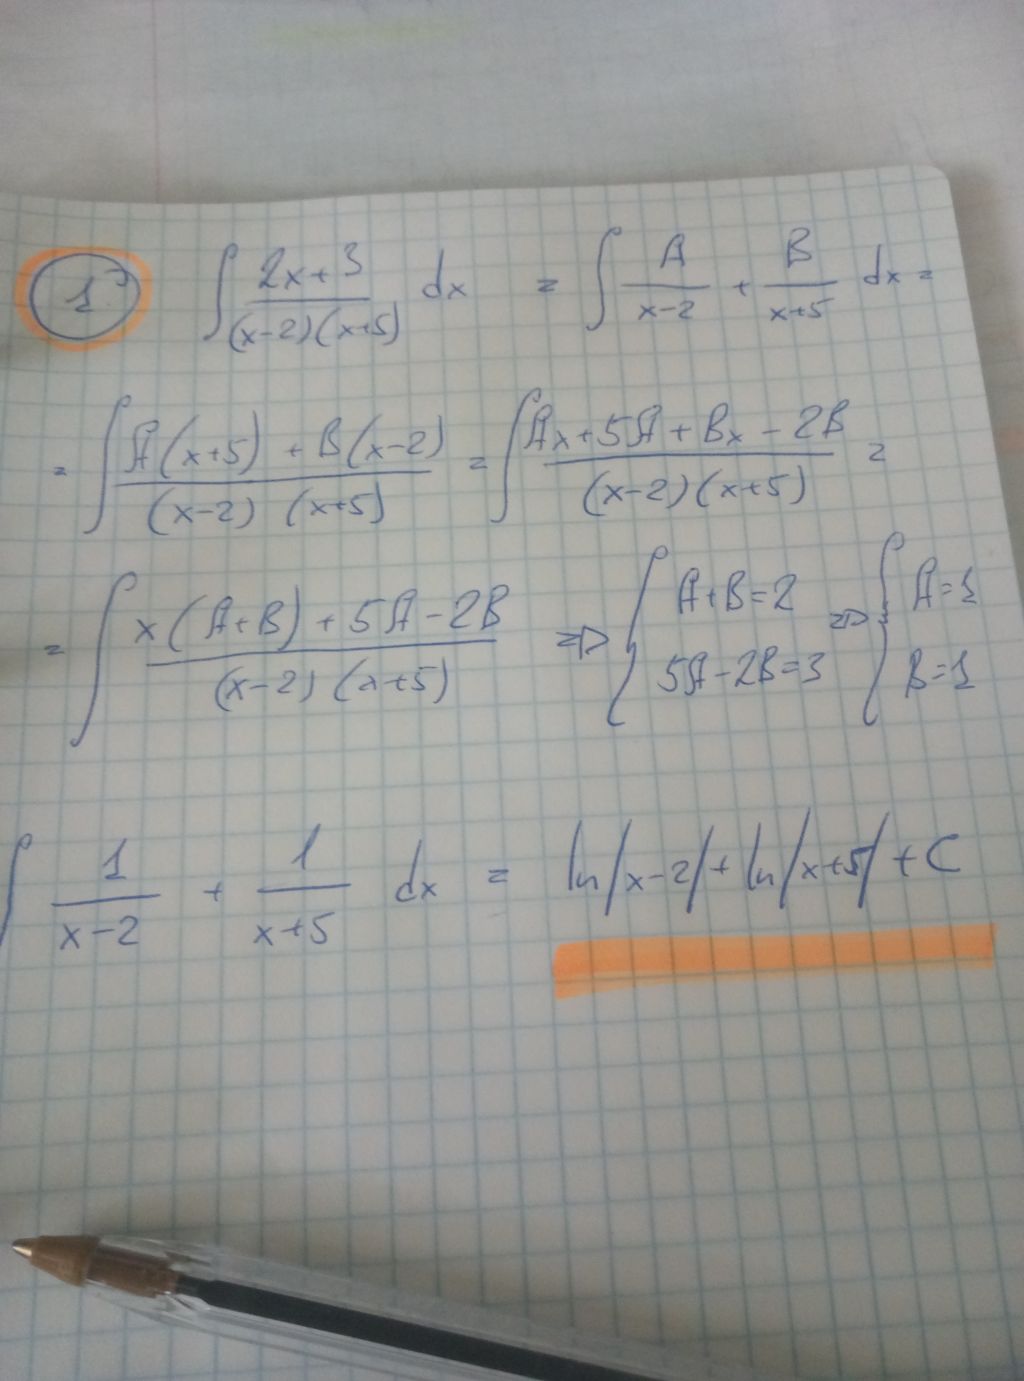 1) ∫ (2x+3)/((x-2)(x+5)) dx = ∫ A/(x-2) + B/(x+5) dx =
= ∫ (A(x+5) + B(x-2))/((x-2) (x+5)) = ∫ (Ax+5A+Bx-2B)/((x-2)(x+5)) =
= ∫ (x(A+B)+5A-2B)/((x-2) (x+5)) => { A+B=2 5A-2B=3 => { A=1 B=1
∫ 1/(x-2) + 1/(x+5) dx = ln|x-2| + ln|x+5| + C